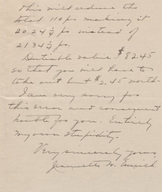 this will reduce the
total 110 ps making it
2024½ ps instead of
2134½ ps
Dutiable value $82.45
so that you will have to
take out but $2.45 worth.
I am very sorry for
this error and consequent
trouble for you. Entirely
my own stupidity.
Very sincerely yours,